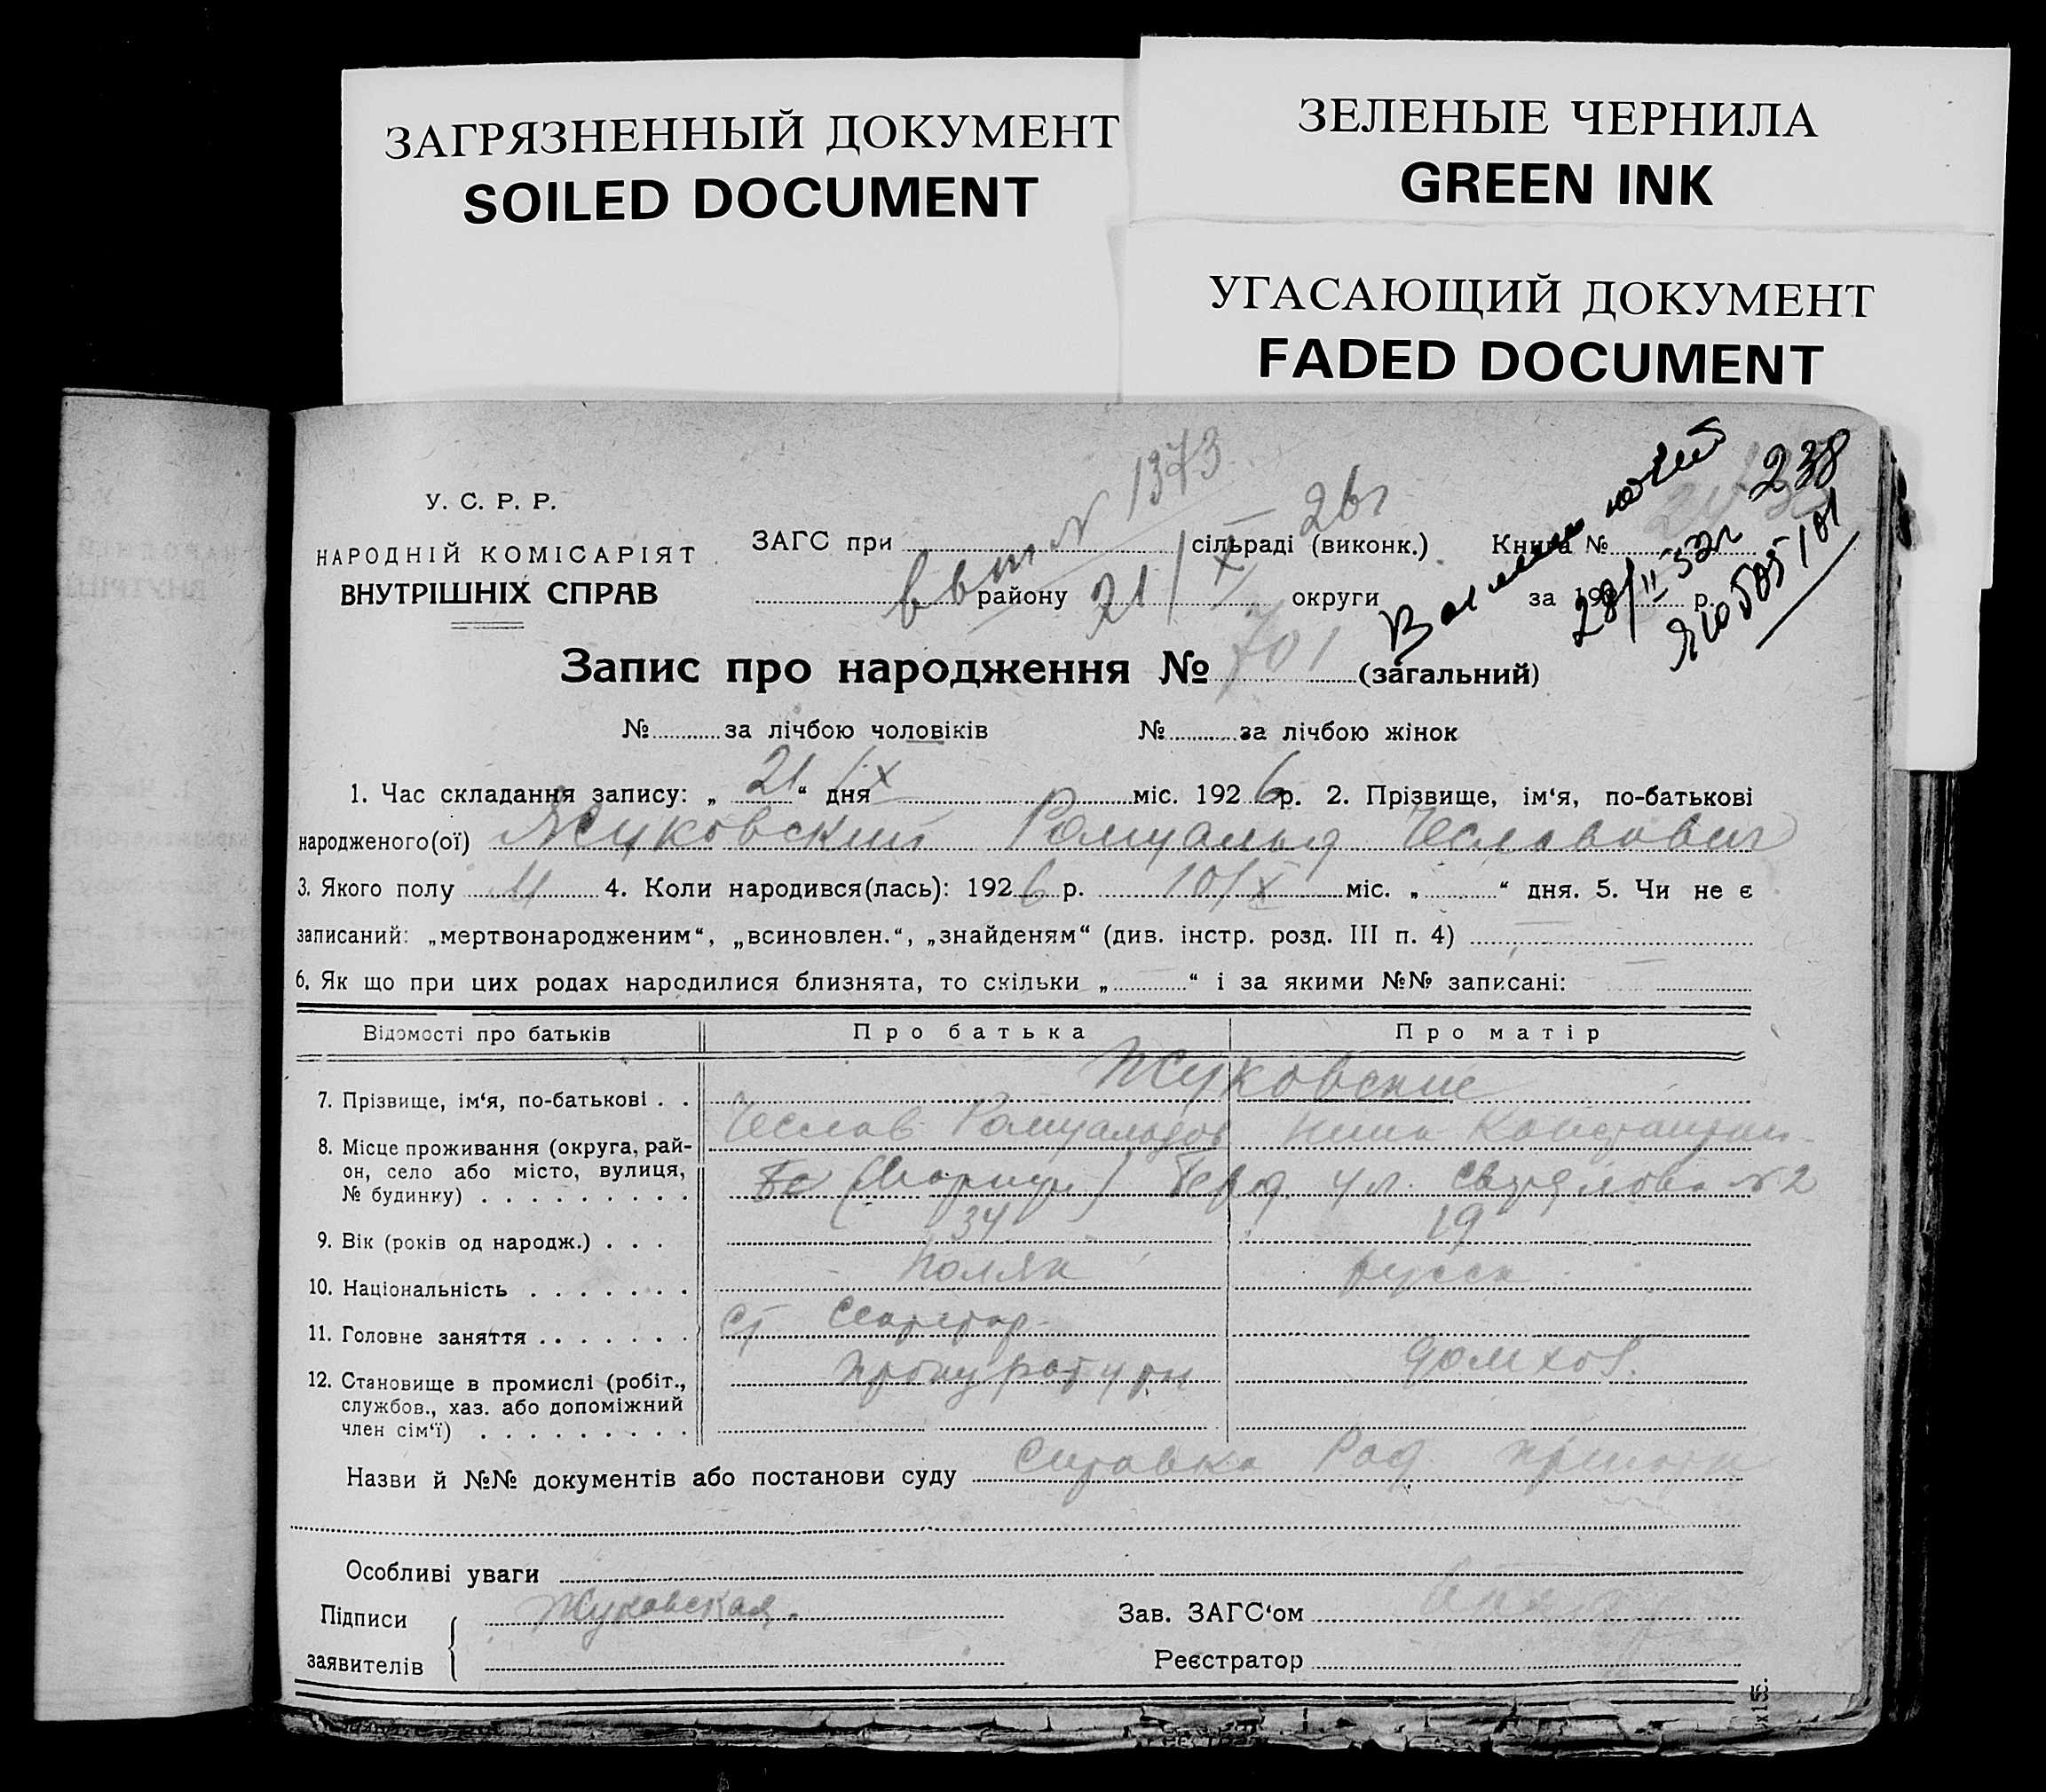 ЗАГРЯЗНЕННЫЙ ДОКУМЕНТ
SOILED DOCUMENT
ЗЕЛЕНЫЕ ЧЕРНИЛА
GREEN INK
УГАСАЮЩИЙ ДОКУМЕНТ
FADED DOCUMENT
У. С. Р. Р.
НАРОДНІЙ КОМІСАРІЯТ
ВНУТРІШНІХ СПРАВ
№ 1373
ЗАГС при сільраді (виконк.)
21/X 26г
району округи
238
Книга №
за 192 р.
28/II 52г
Запис про народження № 701 (загальний)
№ за лічбою чоловіків № за лічбою жінок
1. Час складання запису: „ 21 “ дня X міс. 192 6 р. 2. Прізвище, ім‘я, по-батькові
народженого(ої) Жуковский Ромуальд Чеславович
3. Якого полу М 4. Коли народився(лась): 192 6 р. 10/X міс. „ “ дня. 5. Чи не є
записаний: „мертвонародженим“, „всиновлен.“, „знайденям“ (див. інстр. розд. III п. 4)
6. Як що при цих родах народилися близнята, то скільки „ “ і за якими №№ записані:
Відомості про батьків Про батька Про матір
7. Прізвище, ім‘я, по-батькові . . Жуковские
Чеслав Ромуальдов Нина Константин
8. Місце проживання (округа, рай-
он, село або місто, вулиця,
№ будинку) Берд. ул. Свердлова №2
9. Вік (років од народж.) . . . 34 19
10. Національність . . . . . . . поляк русск
11. Головне заняття . . . . . . . ст секретар
прокуратуры домхоз.
12. Становище в промислі (робіт.,
службов., хаз. або допоміжний
член сім‘ї) . . . . . . . . .
Назви й №№ документів або постанови суду справка Род приюта
Особливі уваги
Підписи Жуковская. Зав. ЗАГС‘ом
заявителів Реєстратор